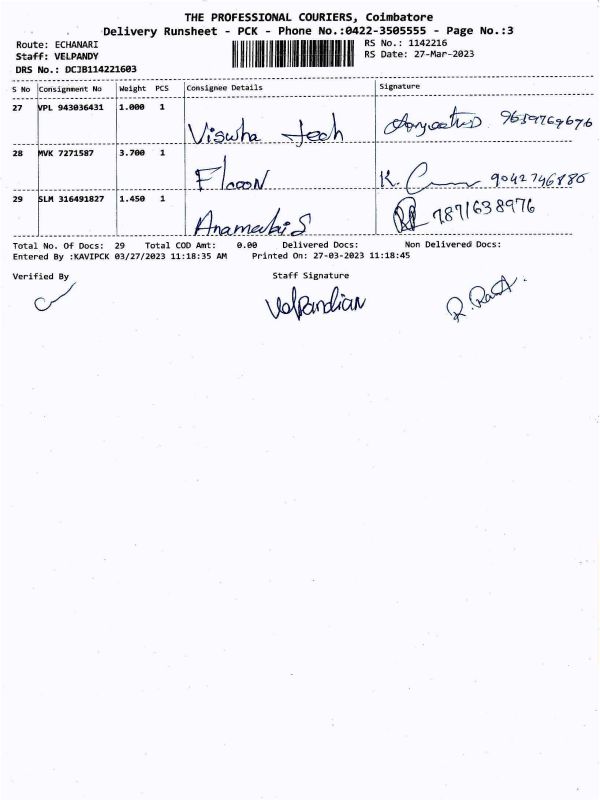 THE PROFESSIONAL COURIERS, Coimbatore
Delivery Runsheet - PCK - Phone No.:0422-3505555 - Page No.:3
Route: ECHANARI
Staff: VELPANDY
DRS No.: DCJB114221603
RS No.: 1142216
RS Date: 27-Mar-2023
S No Consignment No Weight PCS Consignee Details Signature
27 VPL 943036431 1.000 1 Viswha tech 9659769676
28 MVK 7271587 3.700 1 K. 9042746880
29 SLM 316491827 1.450 1 7871638976
Total No. Of Docs: 29 Total COD Amt: 0.00 Delivered Docs: Non Delivered Docs:
Entered By :KAVIPCK 03/27/2023 11:18:35 AM Printed On: 27-03-2023 11:18:45
Verified By Staff Signature
Velpandian